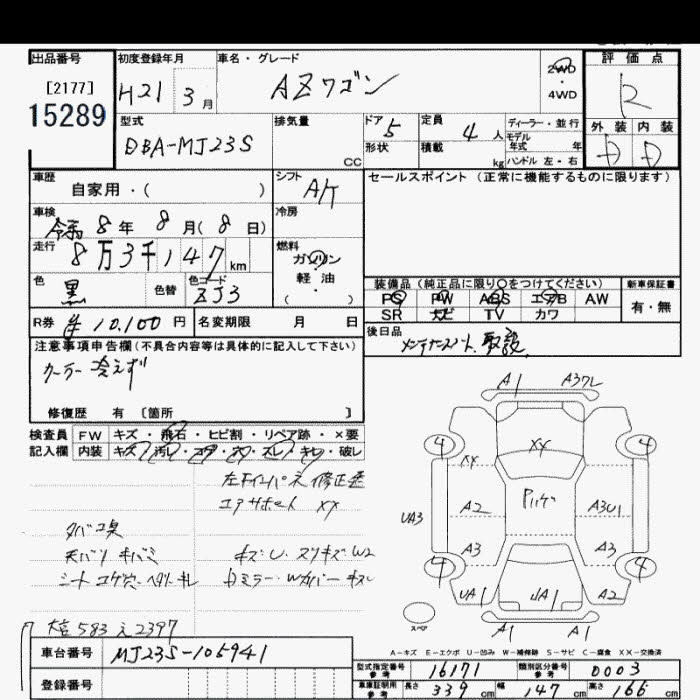 出品番号
[2177]
15289
初度登録年月
H21 3月
車名・グレード
AZワゴン
2WD
4WD
評価点
R
外装 内装
D D
型式
DBA-MJ23S
排気量
CC
ドア 5
形状
定員 4人
積載 kg
ディーラー・並行
モデル年式 年
ハンドル 左・右
車歴
自家用・( )
シフト
A/T
セールスポイント (正常に機能するものに限ります)
車検
令和 8年 8月(8日)
冷房
走行
8万3千147km
燃料
ガソリン
軽油
( )
色
黒
色替
色コード
ZJ3
装備品 (純正品に限り○をつけてください)
PS PW ABS エアB AW
SR ナビ TV カワ
新車保証書
有・無
R券 10,100円
名変期限 月 日
後日品
注意事項申告欄(不具合内容等は具体的に記入して下さい)
クーラー冷えず
修復歴 有 〔箇所 〕
検査員記入欄
FW キズ・飛石・ヒビ割・リペア跡・×要
内装 キズ・汚レ・コゲ・穴・スレ・キレ・破レ
XX
タバコ臭
A1 A3
4 4
XX XX
A2 A3U1
UA3
A3 A3
4 4
UA1 A2
A1 A1
スペア
A-キズ E-エクボ U-凹み W-補修跡 S-サビ C-腐食 XX-交換済
583 2397
車台番号
MJ23S-105941
登録番号
型式指定番号 参考
16171
類別区分番号 参考
0003
車庫証明用 参考
長さ 339cm 幅 147cm 高さ 166cm